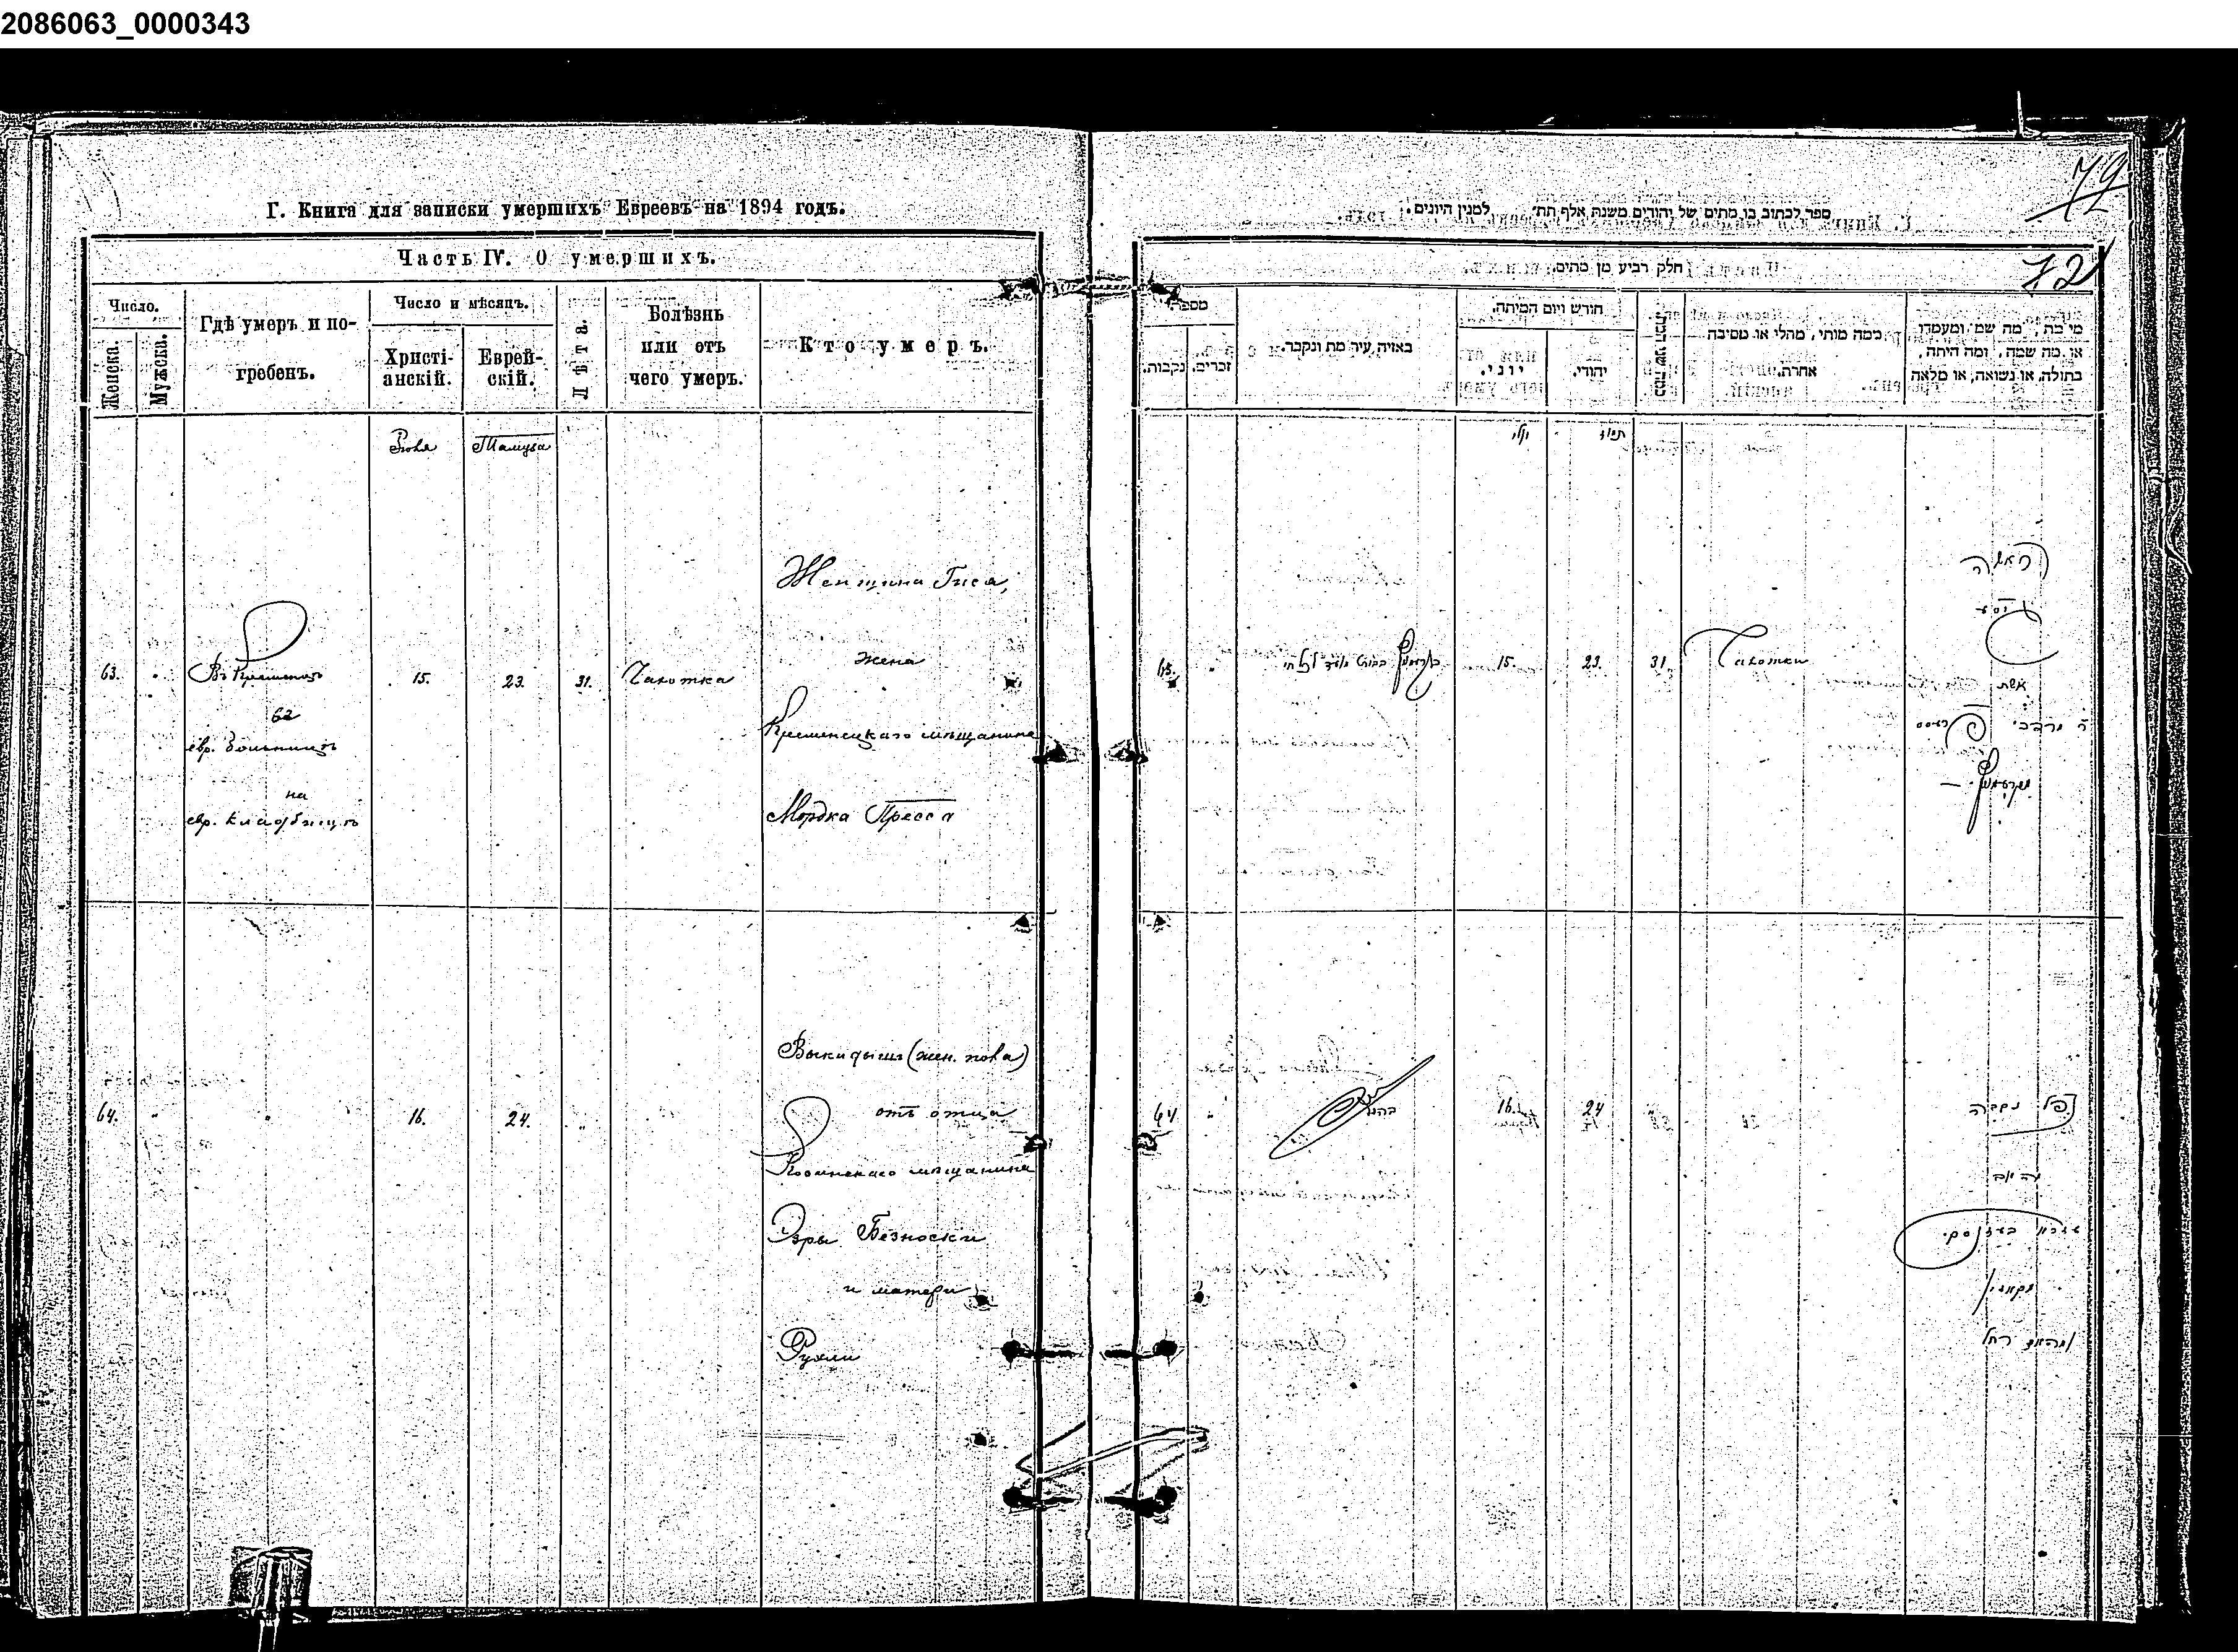 2086063_0000343
Г. Книга для записки умершихъ Евреевъ на 1894 годъ.
Часть IV. О умершихъ.
Число.
Женска.
Мужска.
Гдѣ умеръ и по-
гребенъ.
Число и мѣсяцъ.
Христі-
анскій.
Еврей-
скій.
Лѣта.
Болѣзнь
или отъ
чего умеръ.
Кто умеръ.
Іюля
Тамуза
63.
Въ Кременцѣ
въ
евр. больницѣ
на
евр. кладбищѣ
15.
23.
31.
Чахотка
Женщина Гиса,
жена
Кременецкаго мѣщанина
Мордка Пресса
64.
16.
24.
Выкидышъ (жен. пола)
отъ отца
мѣщанина
Безноски
и матери
Рухли
79
72
ספר לכתוב בו מתים של יהודים משנת אלף תת״ למנין היונים.
חלק רביע מן מתים.
מספר
נקבות.
זכרים.
באיזה עיר מת ונקבר.
חודש ויום המיתה.
יוני.
יהודי.
כמה שני חייו.
כמה מותו, מחלי או מסיבה
אחרת.
מי מת, מה שמו ומעמדו
או מה שמה, ומה היתה,
בתולה, או נשואה, או מלאה
יולי
תמוז
63.
15.
23.
31.
Чахотка
האשה
אשת
64
16.
24
נפל נקבה
מהאב
ומהאם רחל